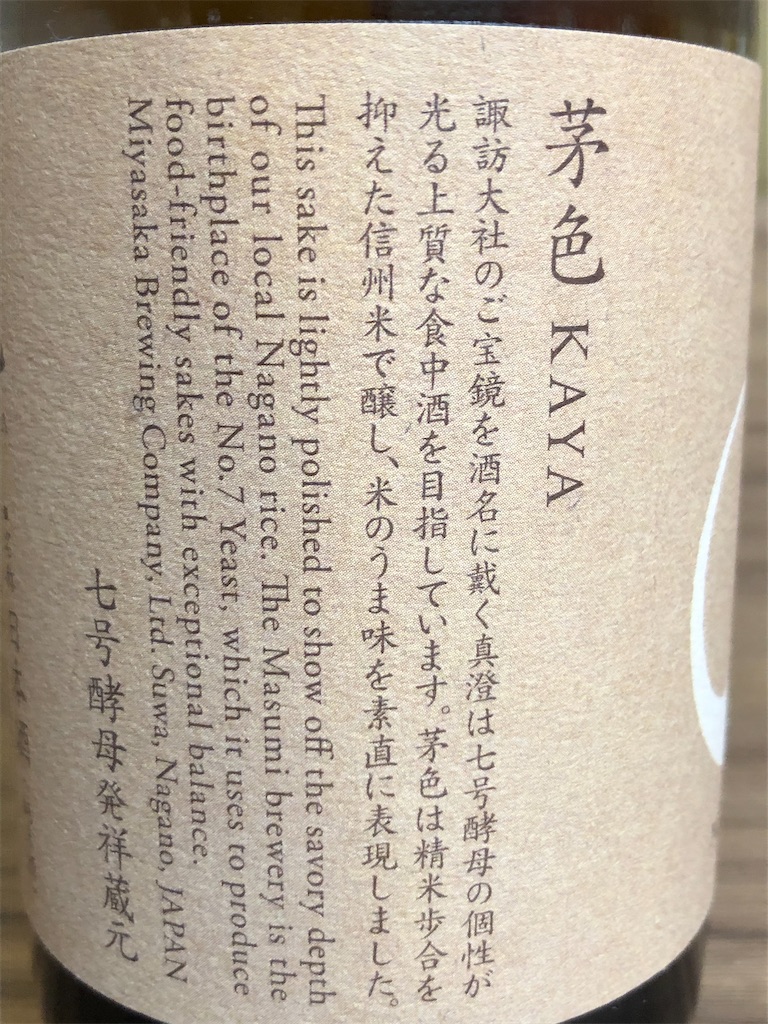 茅色 KAYA
諏訪大社のご宝鏡を酒名に戴く真澄は七号酵母の個性が
光る上質な食中酒を目指しています。茅色は精米歩合を
抑えた信州米で醸し、米のうま味を素直に表現しました。
This sake is lightly polished to show off the savory depth
of our local Nagano rice. The Masumi brewery is the
birthplace of the No.7 Yeast, which it uses to produce
food-friendly sakes with exceptional balance.
Miyasaka Brewing Company, Ltd. Suwa, Nagano, JAPAN
七号酵母発祥蔵元